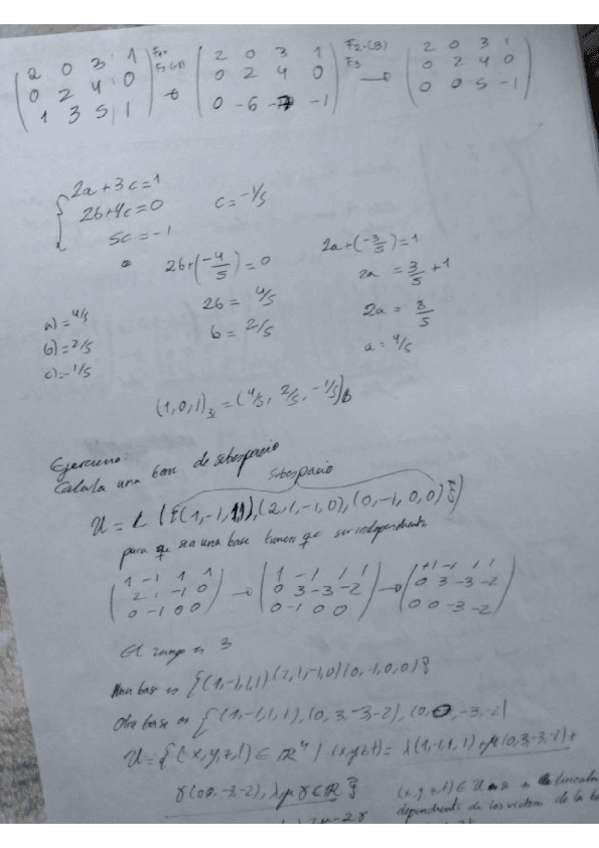 2 0 3 1 F1 2 0 3 1 F2·(3) 2 0 3 1
0 2 4 0 → 0 2 4 0 F3 → 0 2 4 0
1 3 5 1 0 -6 -7 -1 0 0 5 -1
2a+3c=1
2b+4c=0 c=-1/5
5c=-1
2b+(-4/5)=0 2a+(-3/5)=1
2b = 4/5 2a = 3/5 + 1
b = 2/5 2a = 8/5
a = 4/5
a)=4/5
b)=2/5
c)=-1/5
(1,0,1) = (4/5, 2/5, -1/5)B
Ejercicio:
Calcula una base de subespacio
subespacio
U = L ({(1,-1,1,1),(2,1,-1,0),(0,-1,0,0)})
para que sea una base tienen que ser independiente
1 -1 1 1 1 -1 1 1 +1 -1 1 1
2 1 -1 0 → 0 3 -3 -2 → 0 3 -3 -2
0 -1 0 0 0 -1 0 0 0 0 -3 -2
El rango es 3
Una base es {(1,-1,1,1)(2,1,-1,0)(0,-1,0,0)}
Otra base es {(1,-1,1,1),(0,3,-3,-2),(0,0,-3,-2)
U={(x,y,z,t)∈ℝ⁴/(x,y,z,t)=λ(1,-1,1,1)+μ(0,3,-3,-2)+
γ(0,0,-3,-2), λ,μ,γ∈ℝ} (x,y,z,t)∈U
dependiente de los vectores de la